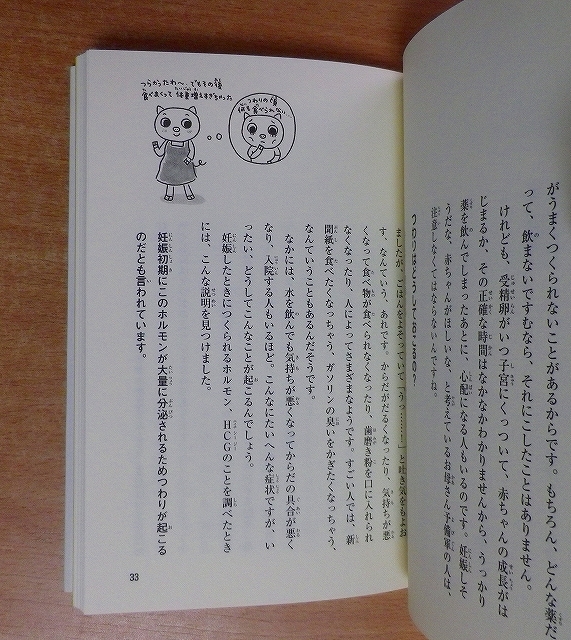 がうまくつくられないことがあるからです。もちろん、どんな薬だ
って、飲まないですむなら、それにこしたことはありません。
けれども、受精卵がいつ子宮にくっついて、赤ちゃんの成長がは
じまるか、その正確な時間はなかなかわかりませんから、うっかり
薬を飲んでしまったあとに、心配になる人もいるのです。妊娠しそ
うだな、赤ちゃんがほしいな、と考えているお母さん予備軍の人は、
注意しなくてはならないんですね。
つわりはどうしておこるの?
ましたが、ごはんをよそっていて「うっ……!」と吐き気をもよお
す、なんていう、あれです。からだがだるくなったり、気持ちが悪
くなって食べ物が食べられなくなったり、歯磨き粉を口に入れられ
なくなったり、人によってさまざまなようです。すごい人では、新
聞紙を食べたくなっちゃう、ガソリンの臭いをかぎたくなっちゃう、
なんていうこともあるんだそうです。
なかには、水を飲んでも気持ちが悪くなってからだの具合が悪く
なり、入院する人もいるほど。こんなにたいへんな症状ですが、い
ったい、どうしてこんなことが起こるんでしょう。
妊娠したときにつくられるホルモン、HCGのことを調べたとき
には、こんな説明を見つけました。
妊娠初期にこのホルモンが大量に分泌されるためつわりが起こる
のだとも言われています。
つわりの頃
何も食べられない
つらかったわ〜、でもその後
食べまくって体重増えすぎちゃった
33